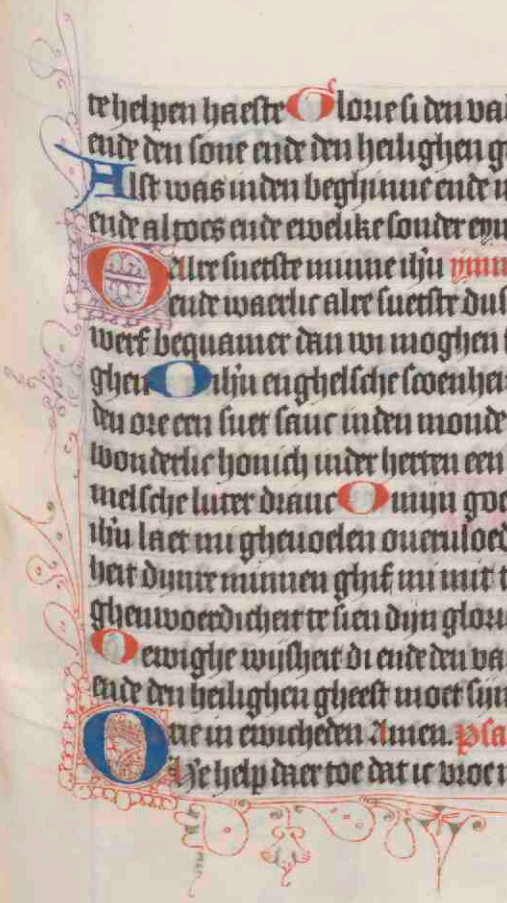 te helpen haeste Glorie si den va
ende den sone ende den heilighen g
Alst was inden beghinne ende
ende altoes ende ewelike sonder eyn
O Alre suetste minne ihu ymn
ende waerlic alre suetste dus
werf bequamer dan wi moghen
ghen O ihu enghelsche scoenhei
den ore een suet sanc inden monde
wonderlic honich inder herten een
melsche luter dranc O mijn goe
ihu laet mi gheuoelen oueruloed
heit dijnre minnen ghif mi mit t
ghenwoerdicheit te sien dijn glori
O ewighe wijsheit di ende den va
ende den heilighen gheest moet sijn
ere in ewicheden Amen. Psa
O Here help daer toe dat ic vroe